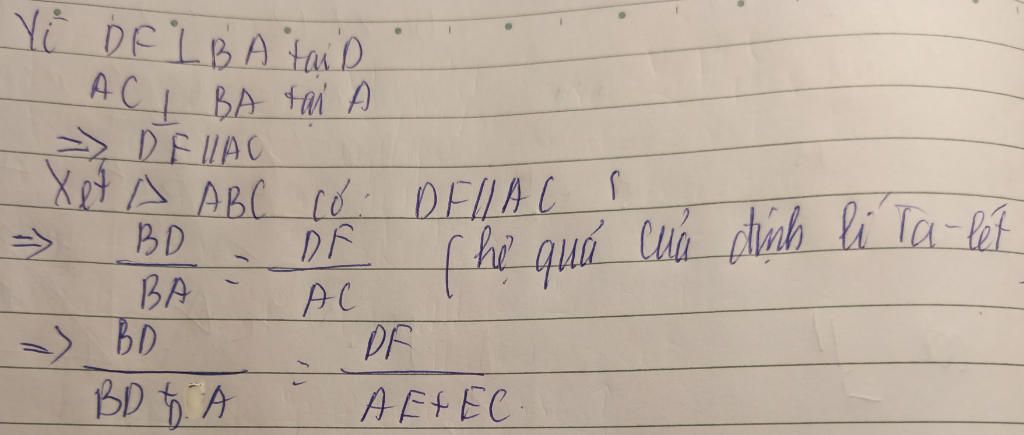 Vì DF ⊥ BA tại D
AC ⊥ BA tại A
=> DF // AC
Xét △ ABC có: DF // AC
=> BD/BA = DF/AC (hệ quả của định lí Ta-lét
=> BD/(BD + DA) = DF/(AE + EC)